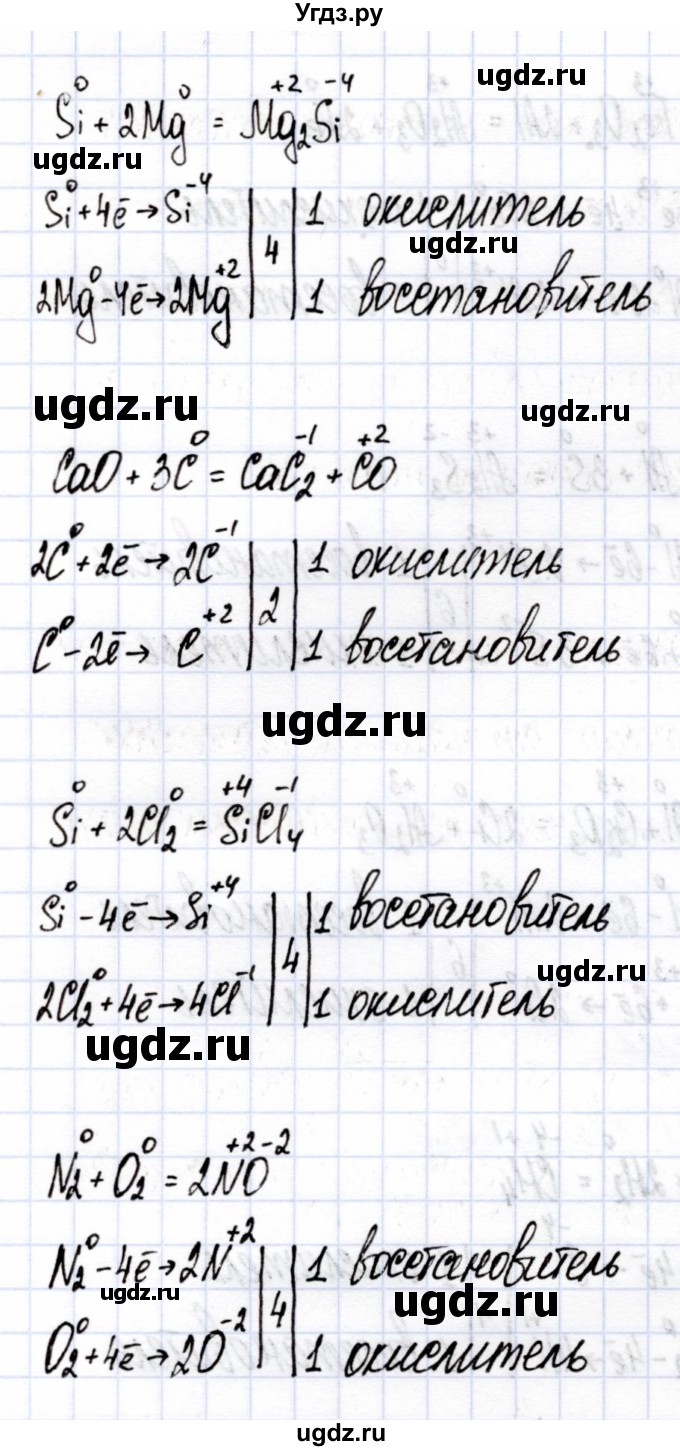 Угдз.ру
ugdz.ru
Si⁰ + 2Mg⁰ = Mg₂⁺²Si⁻⁴
ugdz.ru
Si⁰ + 4ē → Si⁻⁴ | 4 | 1 окислитель
ugdz.ru
2Mg⁰ - 4ē → 2Mg⁺² | 1 восстановитель
ugdz.ru ugdz.ru
CaO + 3C⁰ = CaC₂⁻¹ + C⁺²O
2C⁰ + 2ē → 2C⁻¹ | 2 | 1 окислитель
C⁰ - 2ē → C⁺² | 1 восстановитель
ugdz.ru
Si⁰ + 2Cl₂⁰ = Si⁺⁴Cl₄⁻¹
Si⁰ - 4ē → Si⁺⁴ | 4 | 1 восстановитель
ugdz.ru
2Cl₂⁰ + 4ē → 4Cl⁻¹ | 1 окислитель
ugdz.ru
N₂⁰ + O₂⁰ = 2N⁺²O⁻²
N₂⁰ - 4ē → 2N⁺² | 4 | 1 восстановитель
ugdz.ru ugdz.ru
O₂⁰ + 4ē → 2O⁻² | 1 окислитель
ugdz.ru